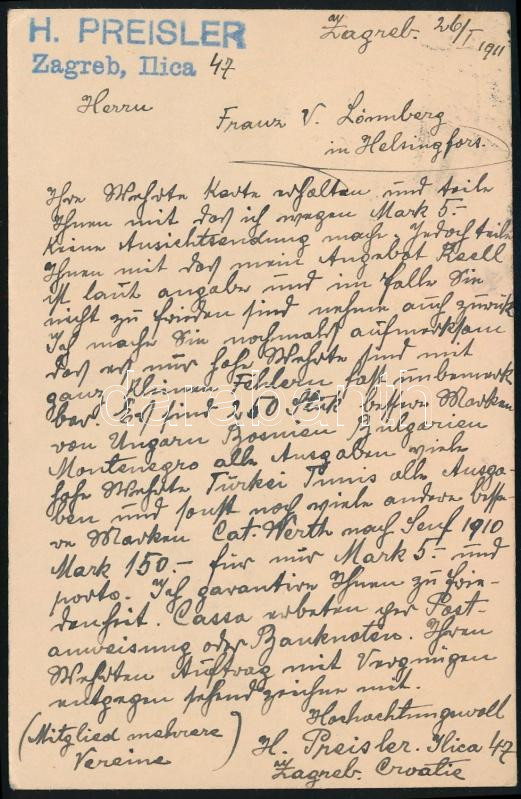 H. PREISLER
Zagreb, Ilica 47
Zagreb. 26/I 1911
Herrn
Franz V. Lönnberg
in Helsingfors.
Ihre Wehrte Karte erhalten und teile
Ihnen mit das ich wegen Mark 5.-
keine Ansichtsendung mache. Jedoch teile
Ihnen mit das mein Angebot Reell
ist laut angabe und im falle Sie
nicht zu frieden sind nehme auch zurück
Ich mache Sie nochmals aufmerksam
das es nur hohe Wehrte sind mit
ganz kleinen Fehlern fast unbemerk
bar. Es sind 250 Stück bessere Marken
von Ungarn Bosnien Bulgarien
Montenegro alle Ausgaben viele
hohe Wehrte Türkei Tunis alle Ausga-
ben und sonst noch viele andere besse-
re Marken Cat. Werth nach Senf 1910
Mark 150.- für nur Mark 5.- und
porto. Ich garantire Ihnen zu frie-
denheit. Cassa erbeten per Post-
anweisung oder Banknoten. Ihren
Wehrten Auftrag mit Vergnügen
entgegen sehend zeichne mit.
Hochachtungsvoll
(Mitglied mehrere
Vereine)
H. Preisler. Ilica 47
Zagreb. Croatie
darabanth